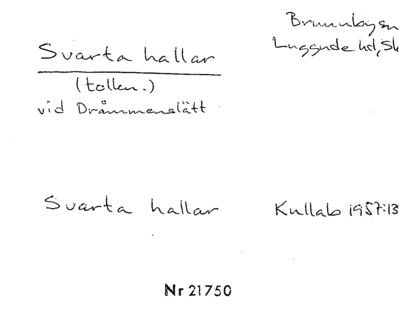 Svarta hallar
(tolkn.)
vid Drammenslätt
Brunnbysn
Luggude hd, Sk
Svarta hallar
Kullab 1957:13
Nr 21750